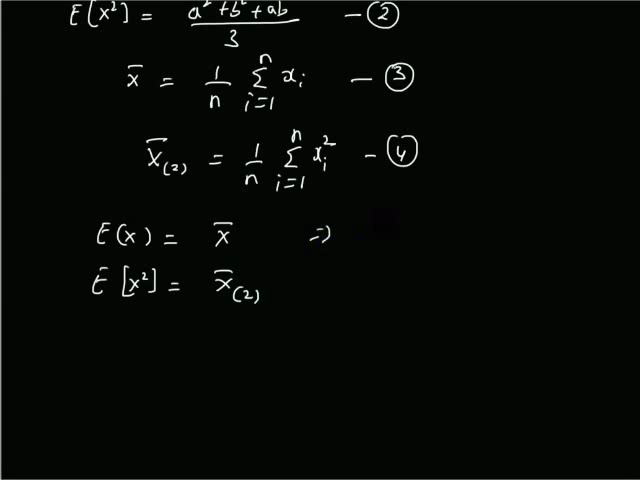 E[x²] = a² + b² + ab / 3 — ②
x̄ = 1/n ∑ i=1 n xi — ③
x̄(2) = 1/n ∑ i=1 n xi² — ④
E(x) = x̄ ⇒
E[x²] = x̄(2)